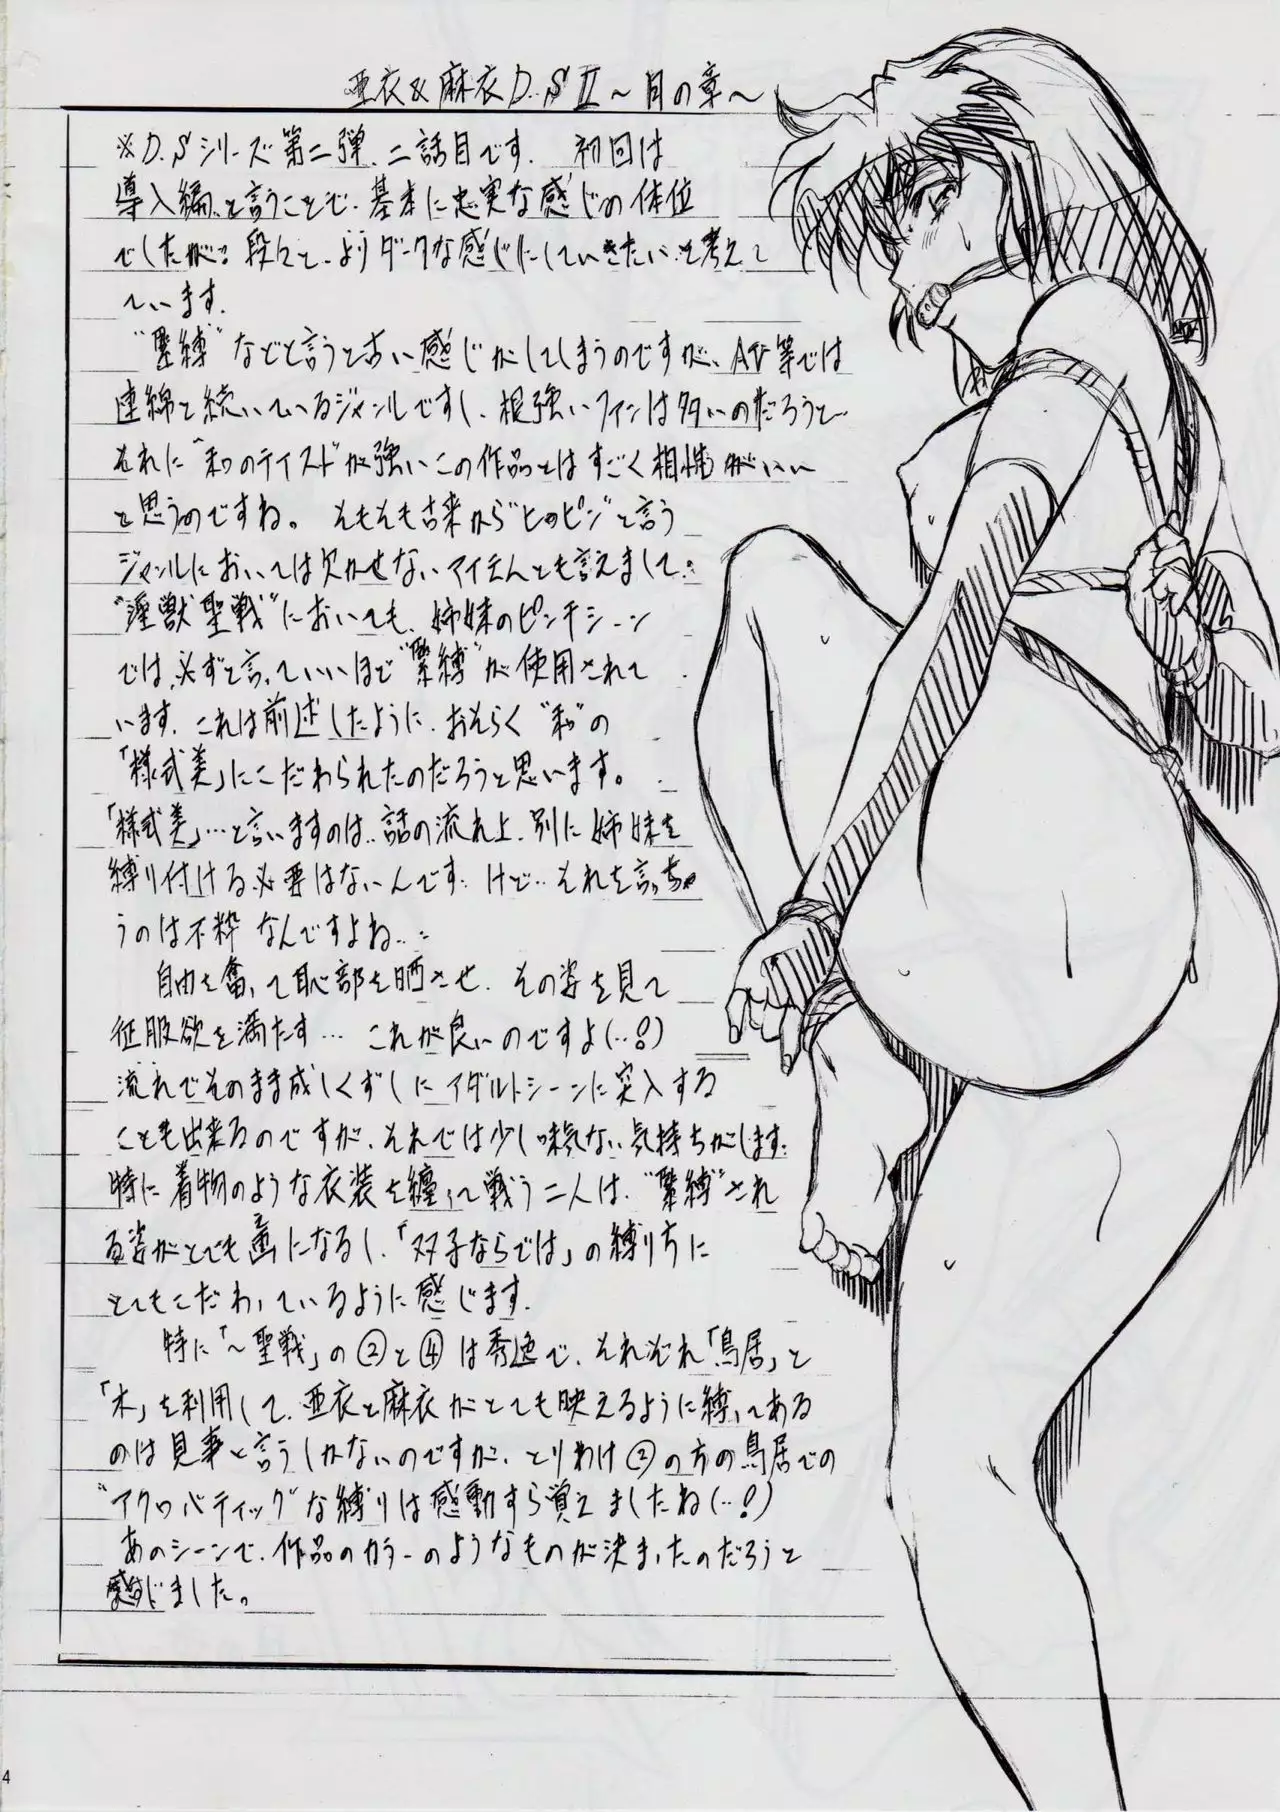 亜衣&麻衣D.SⅡ～月の章～
※D.Sシリーズ第二弾、二話目です。初回は
導入編、と言うことで、基本に忠実な感じの体位
でしたが、段々と、よりダークな感じにしていきたい、と考え
ています。
“緊縛”などと言うと古い感じがしてしまうのですが、AV等では
連綿と続いているジャンルですし、根強いファンは多いのだろうと…
それに“和”のテイストが強いこの作品とはすごく相性がいい
と思うのですね。そもそも古来から“ヒロピン”と言う
ジャンルにおいては欠かせないアイテムとも言えまして…
“淫獣聖戦”においても、姉妹のピンチシーン
では、必ずと言っていいほど“緊縛”が使用されて
います。これは前述したように、おそらく“和”の
「様式美」にこだわられたのだろうと思います。
「様式美」…と言いますのは、話の流れ上、別に姉妹を
縛り付ける必要はないんです…けど…それを言っちゃ
うのは不粋なんですよね…
自由を奪って恥部を晒させ、その姿を見て
征服欲を満たす…これが良いのですよ(…!)
流れでそのまま成しくずしにアダルトシーンに突入する
ことも出来るのですが、それでは少し味気ない気持ちがします…
特に着物のような衣装を纏って戦う二人は、“緊縛”され
る姿がとても画になるし、「双子ならでは」の縛り方に
とてもこだわっているように感じます。
特に「～聖戦」の②と④は秀逸で、それぞれ「鳥居」と
「木」を利用して、亜衣と麻衣がとても映えるように縛ってある
のは見事と言うしかないのですが、とりわけ②の方の鳥居での
“アクロバティック”な縛りは感動すら覚えましたね(…!)
あのシーンで、作品のカラーのようなものが決まったのだろうと
感じました。
4